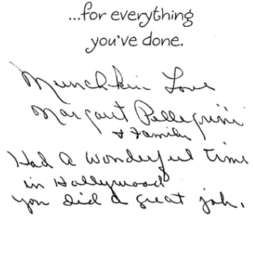 ...for everything
you've done.
Munchkin Love
Margaret Pellegrini
+ Family
Had a wonderful time
in Hollywood
you did a great job.